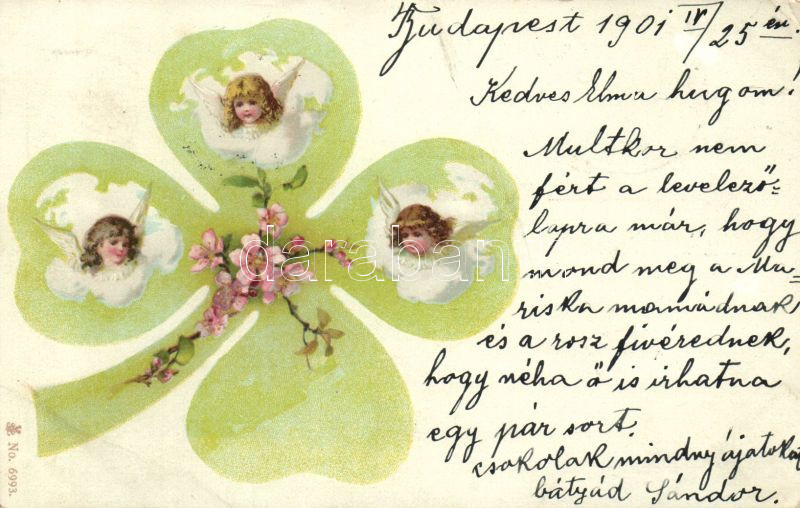 Budapest 1901 IV/25 én.
Kedves Elma hugom!
Multkor nem
fért a levelező-
lapra már, hogy
mond meg a Ma-
riska mamádnak
és a rosz fivérednek,
hogy néha ő is irhatna
egy pár sort.
csokolak mindnyájatokat
bátyád Sándor.
darabanth
No. 6993.